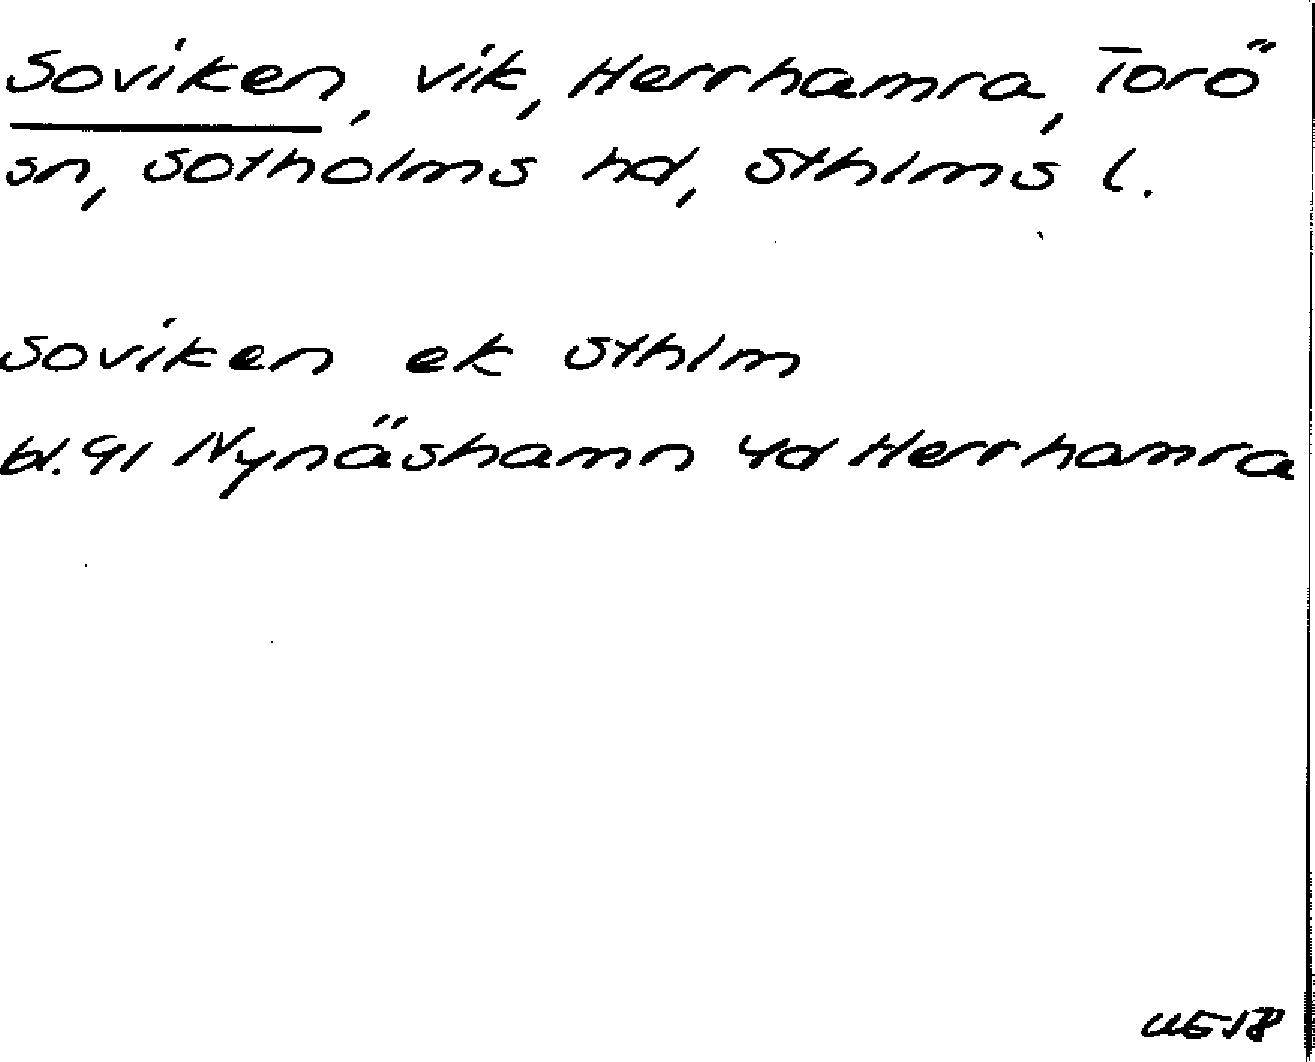 Soviken, vik, Herrhamra, Torö
sn, Sotholms hd, Sthlms l.
Soviken ek Sthlm
bl. 91 Nynäshamn 4d Herrhamra